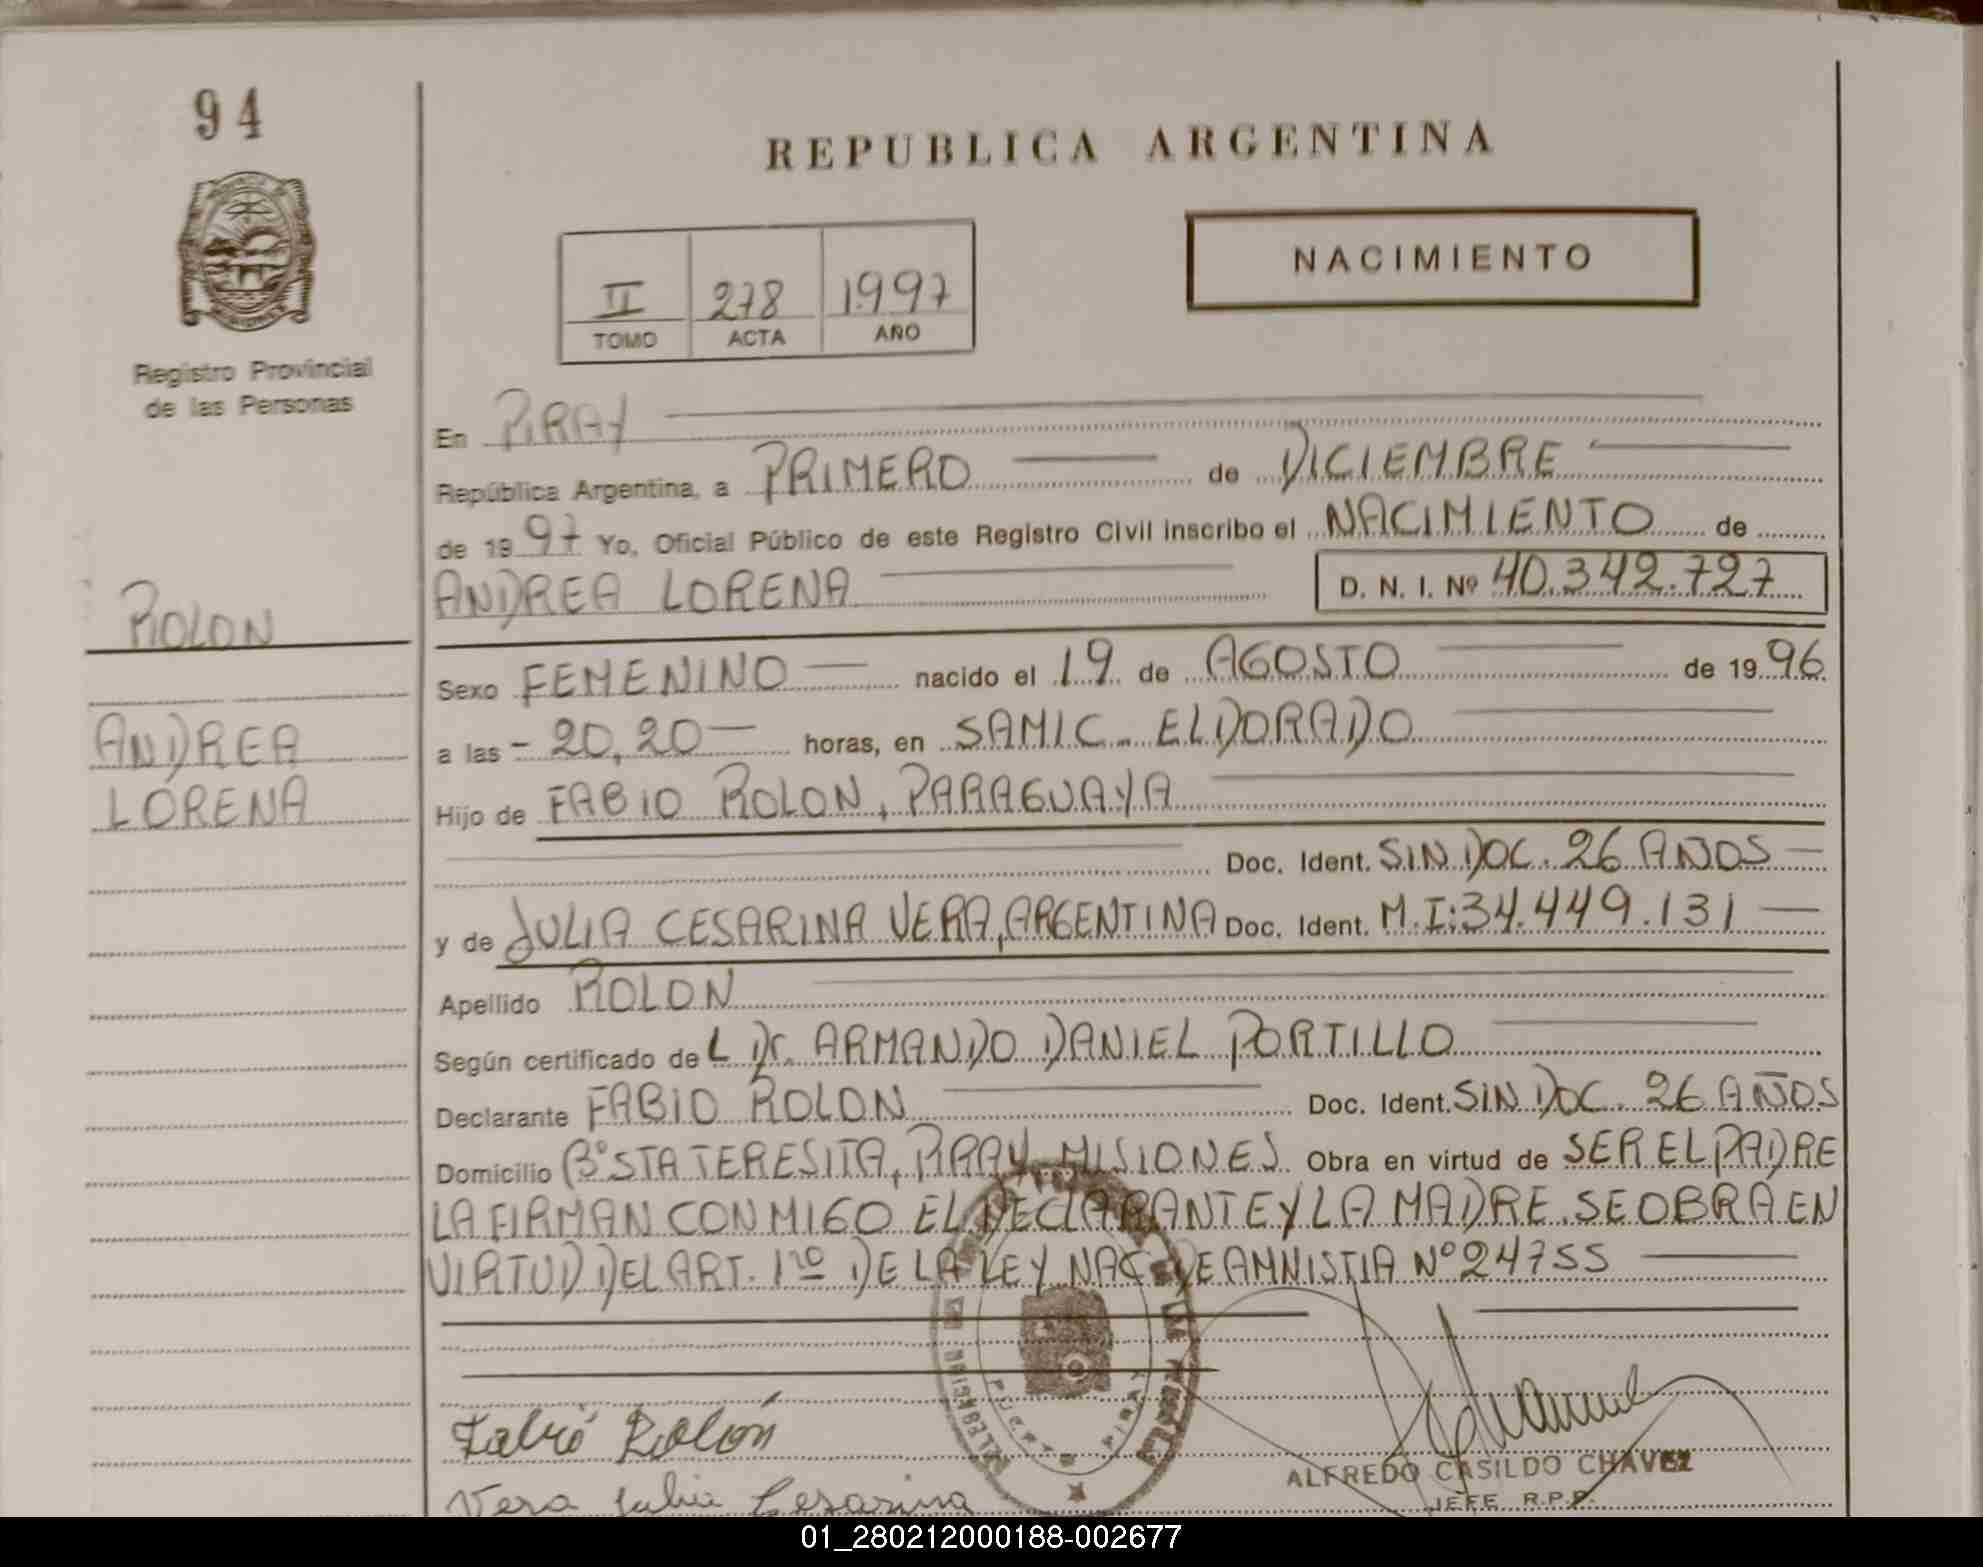 94
REPUBLICA ARGENTINA
NACIMIENTO
II 278 1997
TOMO ACTA AÑO
Registro Provincial
de las Personas
En PIRAY
República Argentina, a PRIMERO de DICIEMBRE
de 1997 Yo, Oficial Público de este Registro Civil inscribo el NACIMIENTO de
ANDREA LORENA D. N. I. Nº 40.342.727
ROLON
ANDREA
LORENA
Sexo FEMENINO nacido el 19 de AGOSTO de 1996
a las - 20,20 - horas, en SAMIC - ELDORADO
Hijo de FABIO ROLON, PARAGUAYA
Doc. Ident. SIN DOC. 26 AÑOS
y de JULIA CESARINA VERA, ARGENTINA Doc. Ident. M.I: 34.449.131
Apellido ROLON
Según certificado de L Dr. ARMANDO DANIEL PORTILLO
Declarante FABIO ROLON Doc. Ident. SIN DOC. 26 AÑOS
Domicilio Bº STA TERESITA, PIRAY MISIONES Obra en virtud de SER EL PADRE
LA FIRMAN CONMIGO EL DECLARANTE Y LA MADRE. SE OBRA EN
VIRTUD DEL ART. 1ro DE LA LEY NAC DE AMNISTIA Nº 24755
Fabió Rolón
Vera Julia Cesarina
ALFREDO CASILDO CHAVEZ
JEFE R.P.P.
01_280212000188-002677